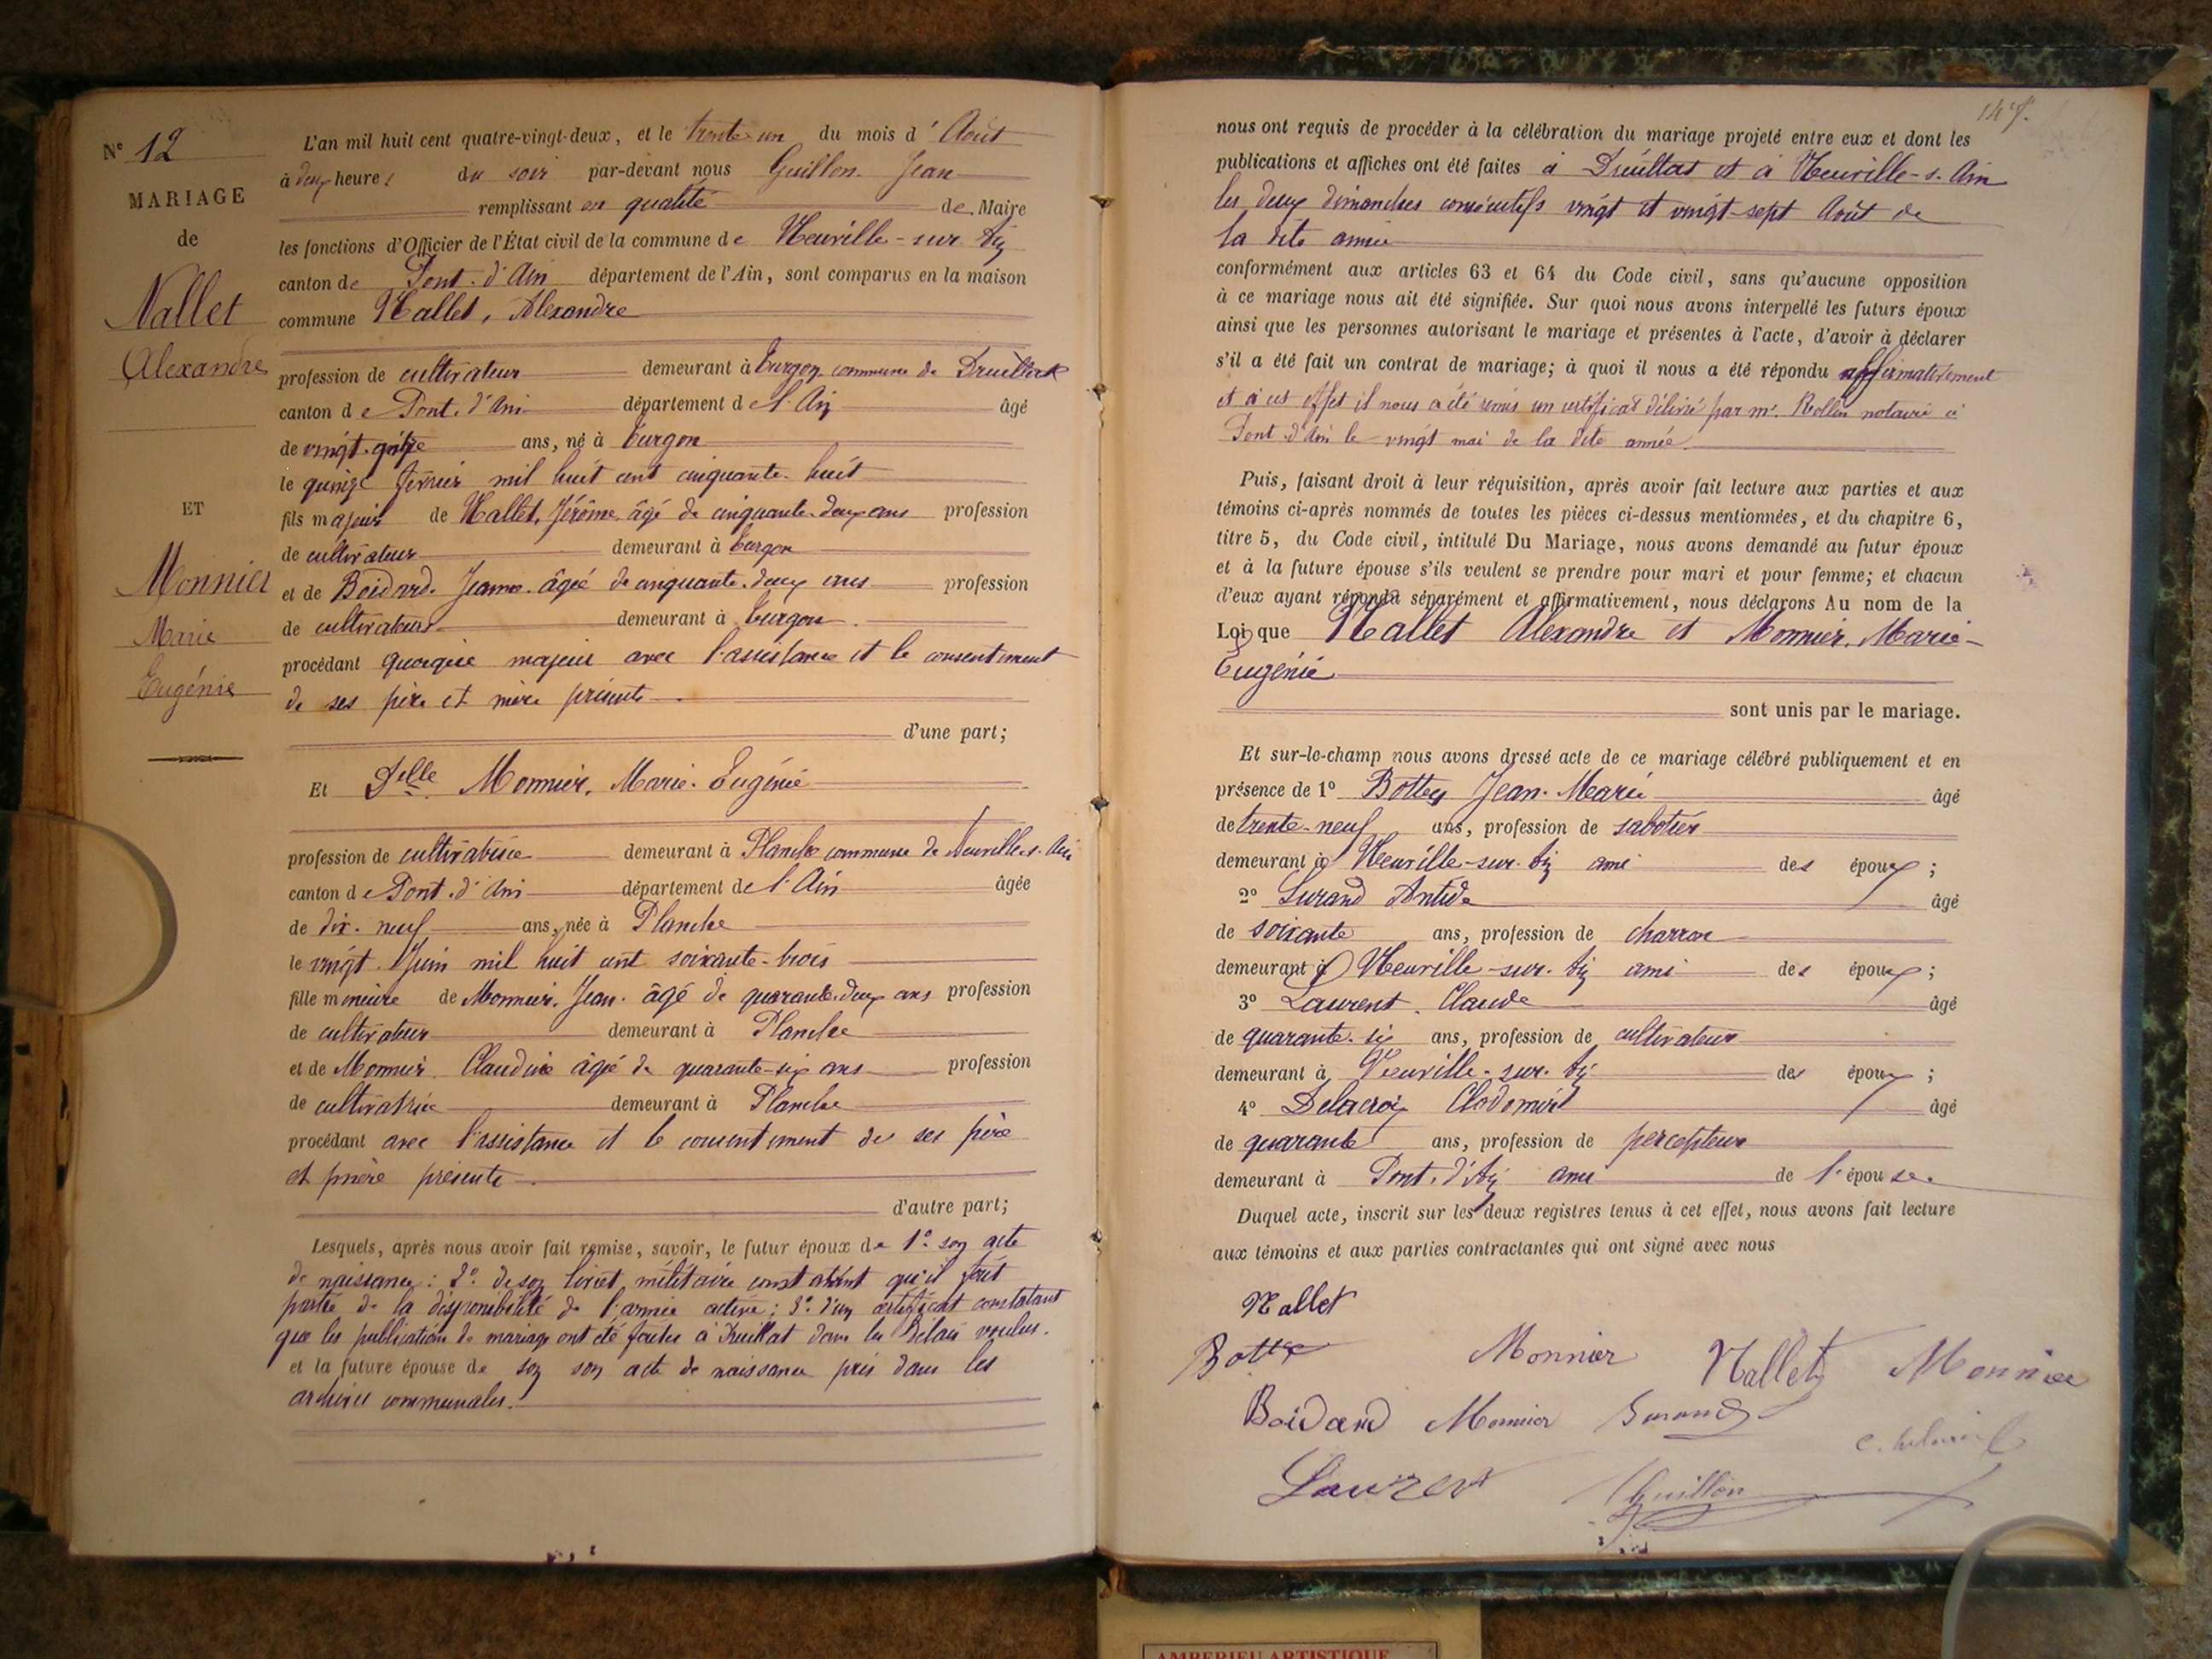 N° 12
MARIAGE
de
Nallet
Alexandre
ET
Monnier
Marie
Eugénie
L'an mil huit cent quatre-vingt-deux, et le trente un du mois d' Août
à deux heures du soir par-devant nous Guillon Jean
remplissant en qualité de Maire
les fonctions d'Officier de l'État civil de la commune de Neuville-sur-Ain
canton de Pont-d'Ain département de l'Ain, sont comparus en la maison
commune Nallet, Alexandre
profession de cultivateur demeurant à Turgon commune de Druillat
canton de Pont-d'Ain département de l'Ain âgé
de vingt-quatre ans, né à Turgon
le quinze février mil huit cent cinquante-huit
fils majeur de Nallet, Jérôme âgé de cinquante-deux ans profession
de cultivateur demeurant à Turgon
et de Boidard Jeanne âgée de cinquante-deux ans profession
de cultivateur demeurant à Turgon
procédant quoique majeur avec l'assistance et le consentement
de ses père et mère présents
d'une part;
Et Delle Monnier, Marie-Eugénie
profession de cultivatrice demeurant à Planche commune de Neuville-s-Ain
canton de Pont-d'Ain département de l'Ain âgée
de dix-neuf ans, née à Planche
le vingt Juin mil huit cent soixante-trois
fille mineure de Monnier, Jean âgé de quarante-deux ans profession
de cultivateur demeurant à Planche
et de Monnier Claudine âgée de quarante-six ans profession
de cultivatrice demeurant à Planche
procédant avec l'assistance et le consentement de ses père
et mère présents
d'autre part;
Lesquels, après nous avoir fait remise, savoir, le futur époux de 1° son acte
de naissance: 2° de son livret militaire constatant qu'il fait
partie de la disponibilité de l'armée active; 3° d'un certificat constatant
que les publications de mariage ont été faites à Druillat dans les délais voulus.
et la future épouse de son son acte de naissance pris dans les
archives communales.
147.
nous ont requis de procéder à la célébration du mariage projeté entre eux et dont les
publications et affiches ont été faites à Druillat et à Neuville-s-Ain
les deux dimanches consécutifs vingt et vingt-sept Août de
la dite année
conformément aux articles 63 et 64 du Code civil, sans qu'aucune opposition
à ce mariage nous ait été signifiée. Sur quoi nous avons interpellé les futurs époux
ainsi que les personnes autorisant le mariage et présentes à l'acte, d'avoir à déclarer
s'il a été fait un contrat de mariage; à quoi il nous a été répondu affirmativement
et à cet effet il nous a été remis un certificat délivré par Mr. Rollin notaire à
Pont-d'Ain le vingt mai de la dite année
Puis, faisant droit à leur réquisition, après avoir fait lecture aux parties et aux
témoins ci-après nommés de toutes les pièces ci-dessus mentionnées, et du chapitre 6,
titre 5, du Code civil, intitulé Du Mariage, nous avons demandé au futur époux
et à la future épouse s'ils veulent se prendre pour mari et pour femme; et chacun
d'eux ayant répondu séparément et affirmativement, nous déclarons Au nom de la
Loi que Nallet Alexandre et Monnier, Marie-
Eugénie
sont unis par le mariage.
Et sur-le-champ nous avons dressé acte de ce mariage célébré publiquement et en
présence de 1° Bottex Jean-Marie âgé
de trente-neuf ans, profession de sabotier
demeurant à Neuville-sur-Ain ami des époux;
2° Durand Antide âgé
de soixante ans, profession de charron
demeurant à Neuville-sur-Ain ami des époux;
3° Laurent Claude âgé
de quarante-six ans, profession de cultivateur
demeurant à Neuville-sur-Ain des époux;
4° Delacroix Clodomir âgé
de quarante ans, profession de percepteur
demeurant à Pont-d'Ain ami de l'épouse.
Duquel acte, inscrit sur les deux registres tenus à cet effet, nous avons fait lecture
aux témoins et aux parties contractantes qui ont signé avec nous
Nallet
Bottex Monnier Nallet Monnier
Boidard Monnier Durand
Laurent Guillon
AMBERIEU ARTISTIQUE